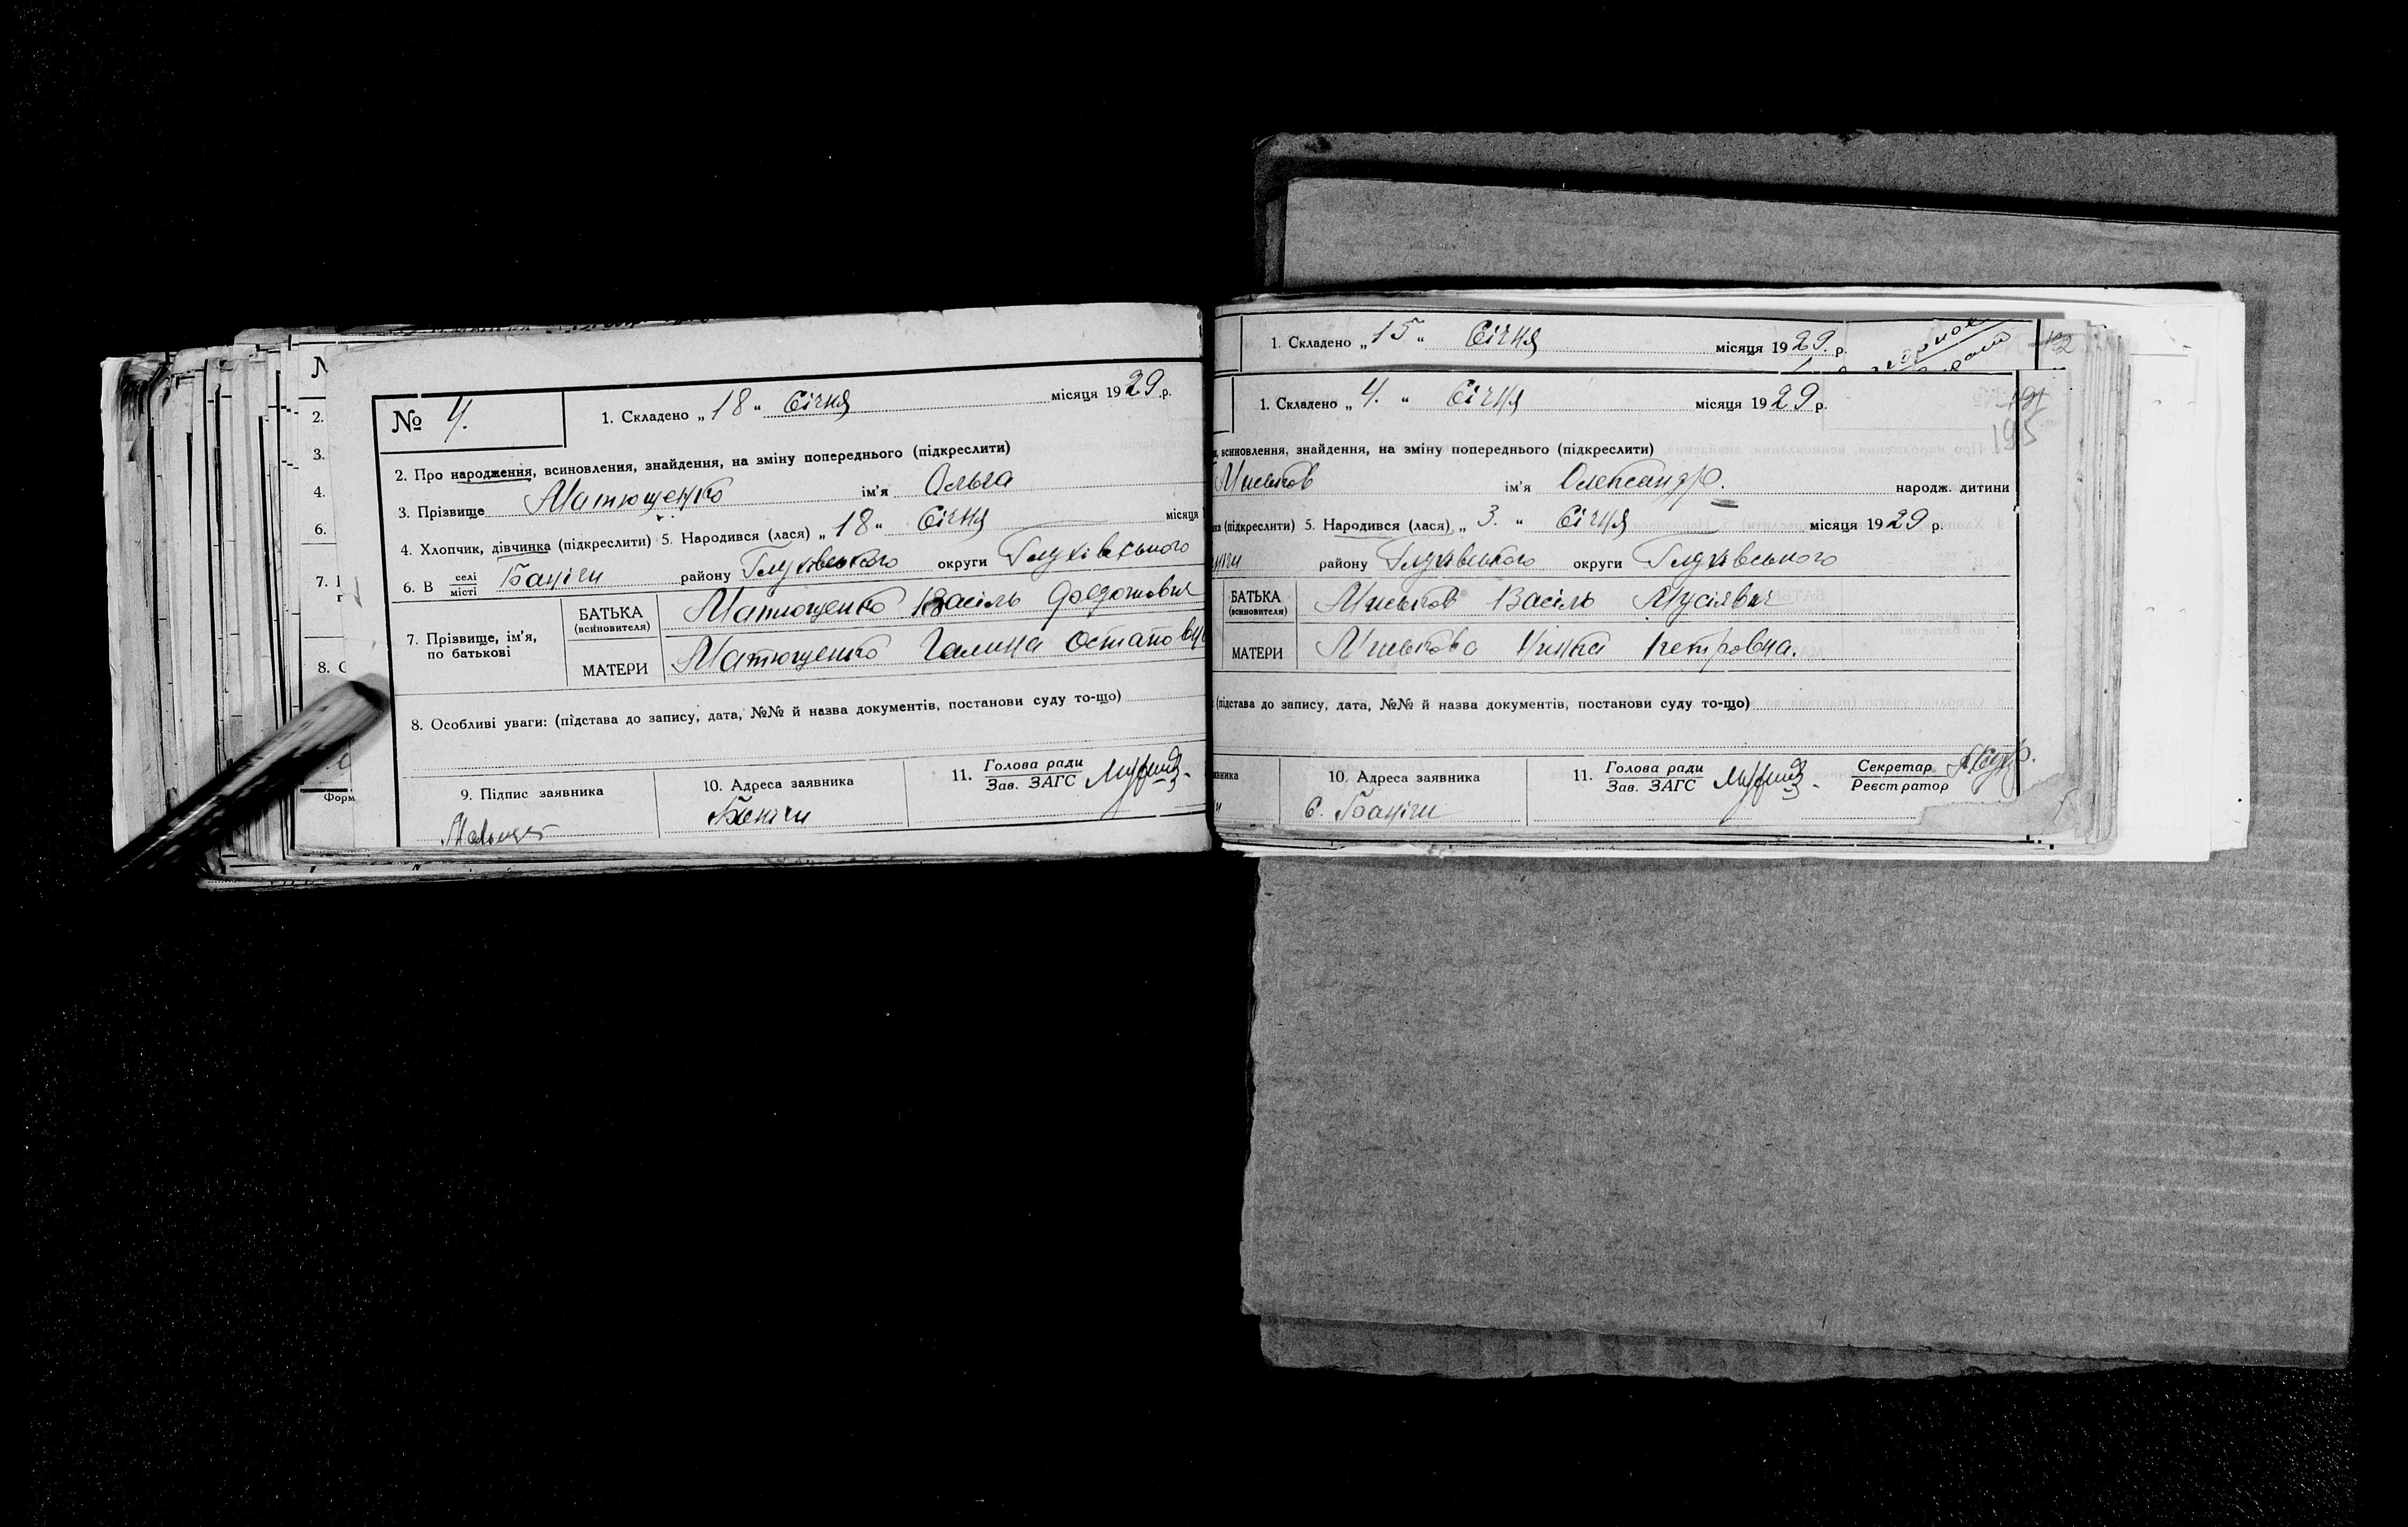 № 4.
1. Складено „ 18 “ Січня місяця 1929 р.
2. Про народження, всиновлення, знайдення, на зміну попереднього (підкреслити)
3. Прізвище Матющенко ім'я Ольга
4. Хлопчик, дівчинка (підкреслити) 5. Народився (лася) „ 18 “ Січня місяця
6. В селі місті Баничи району Глухівського округи Глухівського
7. Прізвище, ім'я, по батькові
БАТЬКА (всиновителя) Матющенко Васіль Федотович
МАТЕРИ Матющенко Галина
8. Особливі уваги: (підстава до запису, дата, №№ й назва документів, постанови суду то-що)
9. Підпис заявника
10. Адреса заявника
11. Голова ради Зав. ЗАГС
Форм
1. Складено „ 15 “ Січня місяця 1929. р.
1. Складено „ 4. “ Січня місяця 1929 р.
195
всиновлення, знайдення, на зміну попереднього (підкреслити)
ім'я Олександр. народж. дитини
(підкреслити) 5. Народився (лася) „ 3. “ Січня місяця 1929 р.
району Глухівського округи Глухівського
БАТЬКА (всиновителя) Васіль
МАТЕРИ Петровна.
(підстава до запису, дата, №№ й назва документів, постанови суду то-що)
10. Адреса заявника
11. Голова ради Зав. ЗАГС
Секретар Реєстратор